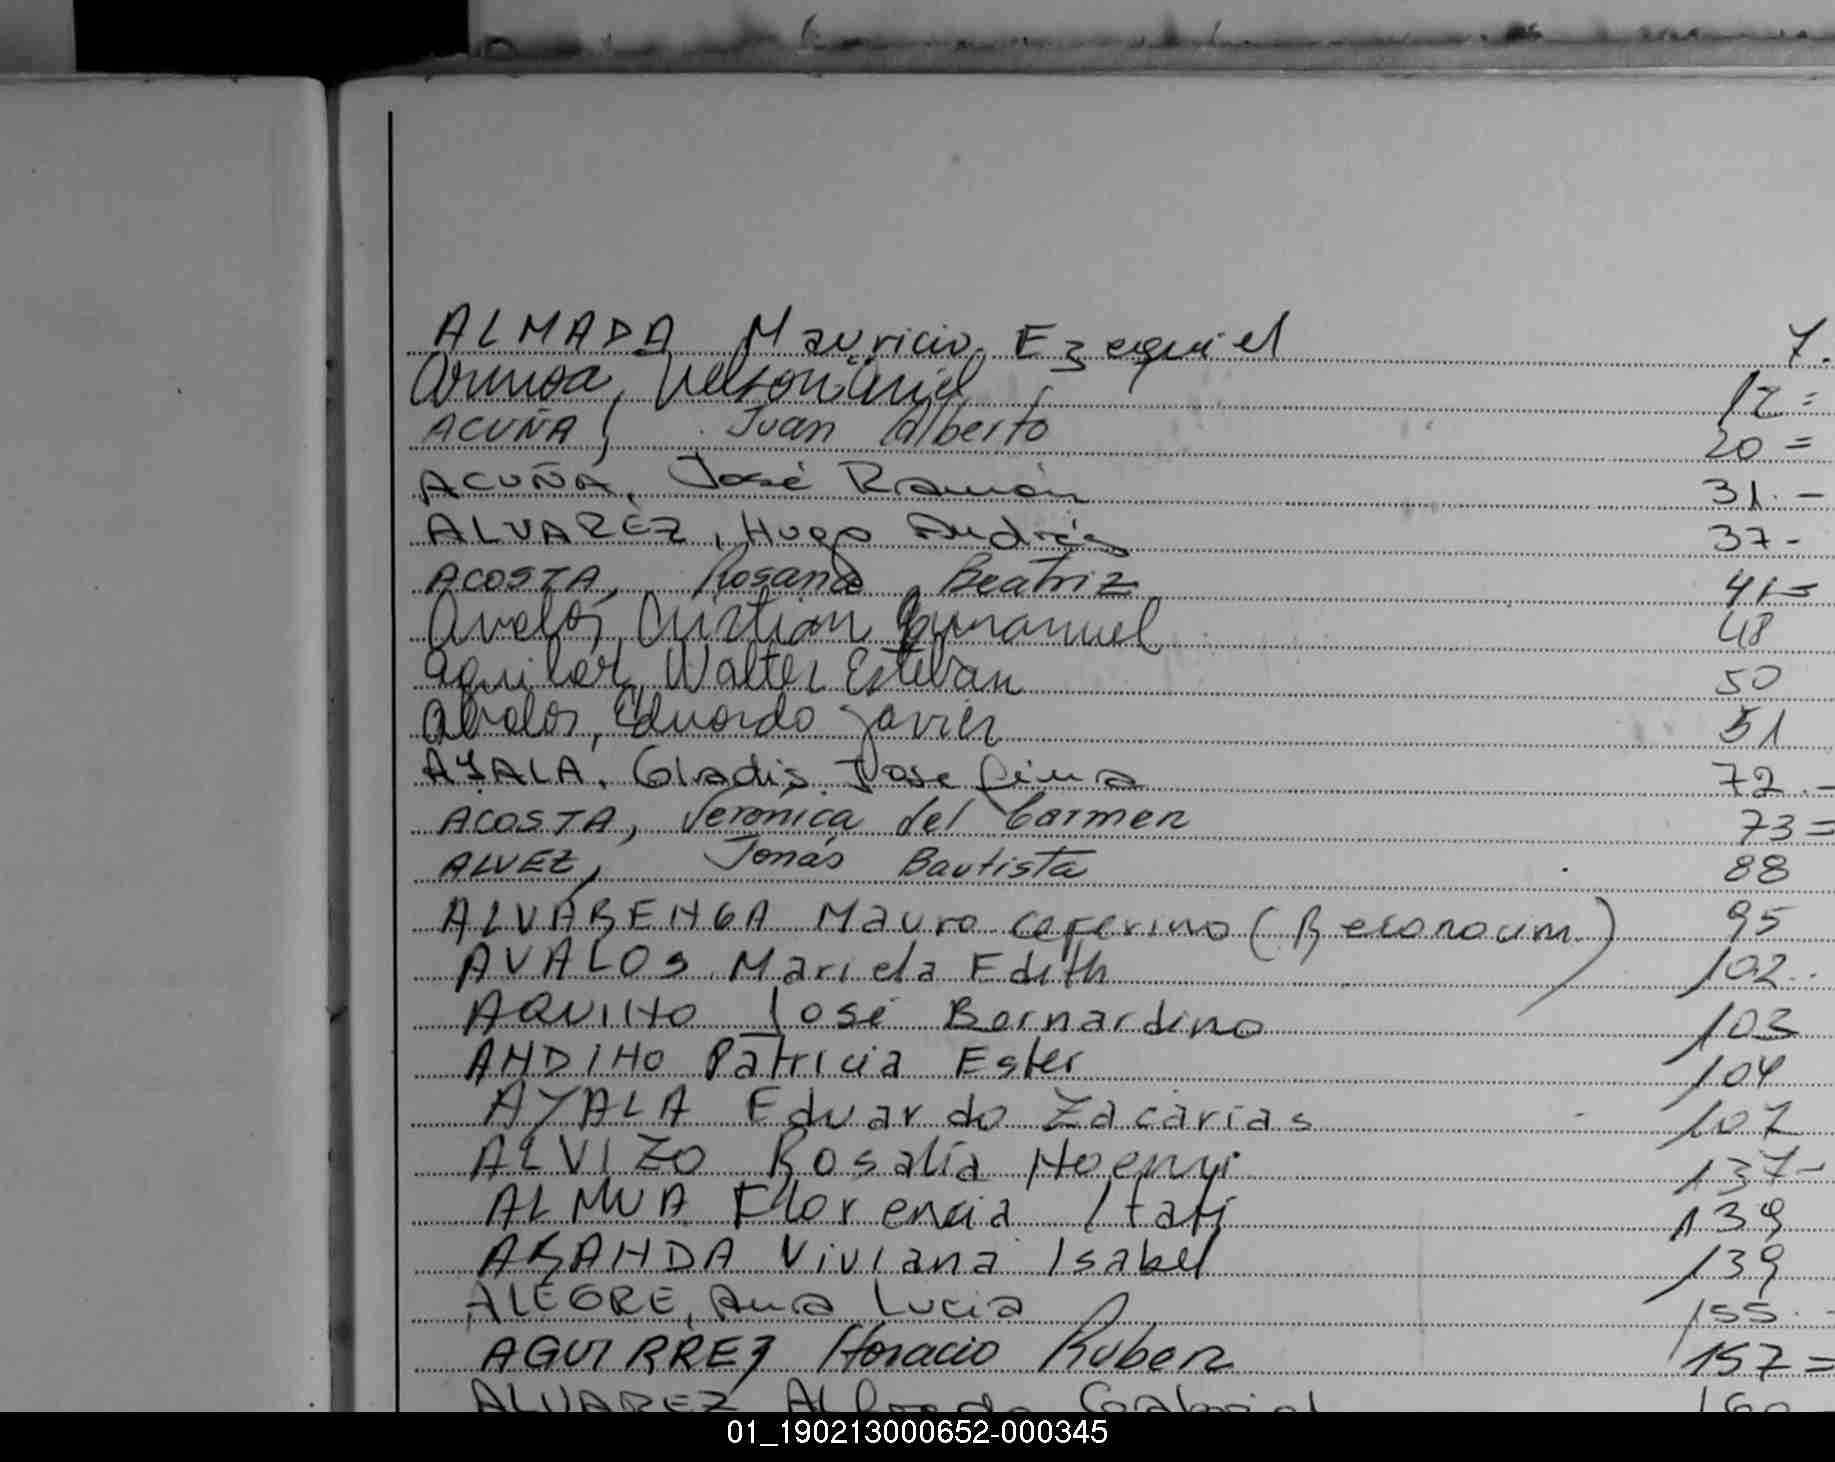 ALMADA Mauricio Ezequiel 7.
Armoa, Nelson Ariel 12=
ACUÑA, Juan Alberto 20=
ACUÑA, José Ramón 31.-
ALVAREZ, Hugo Andrés 37-
ACOSTA, Rosana Beatriz 41=
Avalos, Cristian Emmanuel 48
Aguilar, Walter Esteban 50
Avalos, Eduardo Javier 51
AYALA, Gladis Josefina 72.-
ACOSTA, Verónica del Carmen 73=
ALVEZ, Jonás Bautista 88
ALVARENGA Mauro Ceferino (Reconocim.) 95
AVALOS Mariela Edith 102..
AQUINO José Bernardino 103
ANDINO Patricia Ester 104
AYALA Eduardo Zacarias 107
ALVIZO Rosalía Noemí 137-
ALMUA Florencia Itatí 139
ARANDA Viviana Isabel 139
ALEGRE, Ana Lucia 155.-
AGUIRREZ Horacio Ruben 157=
ALVAREZ Alfredo Gabriel 160
01_190213000652-000345